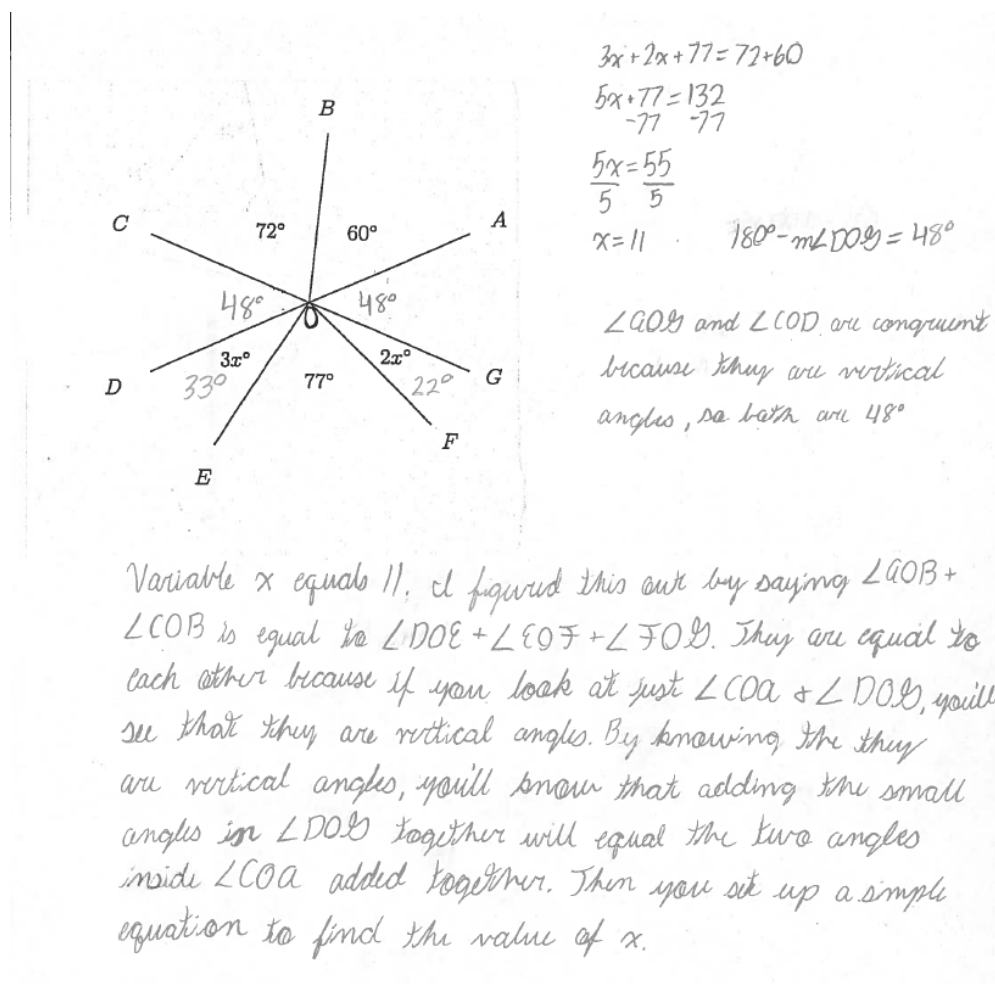 3x+2x+77=72+60
5x+77=132
-77 -77
5x=55
5 5
x=11 180°-m∠DOG=48°
B
C 72° 60° A
48° 48°
O
D 3x° 2x° G
33° 77° 22°
F
E
∠AOG and ∠COD are congruent
because they are vertical
angles, so both are 48°
Variable x equals 11. I figured this out by saying ∠AOB+
∠COB is equal to ∠DOE+∠EOF+∠FOG. They are equal to
each other because if you look at just ∠COA & ∠DOG, you'll
see that they are vertical angles. By knowing the they
are vertical angles, you'll know that adding the small
angles in ∠DOG together will equal the two angles
inside ∠COA added together. Then you set up a simple
equation to find the value of x.